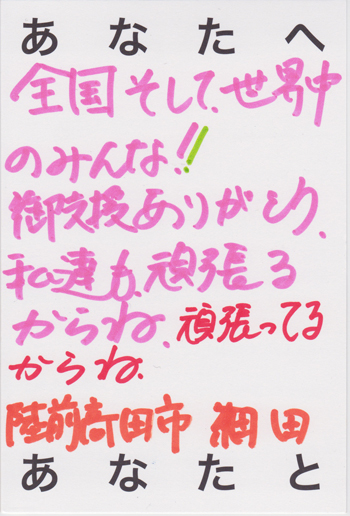 あなたへ
全国そして、世界中
のみんな!!
御院援ありがとう、
私達も、頑張る
からね、頑張ってる
からね、
陸前高田市 細田
あなたと